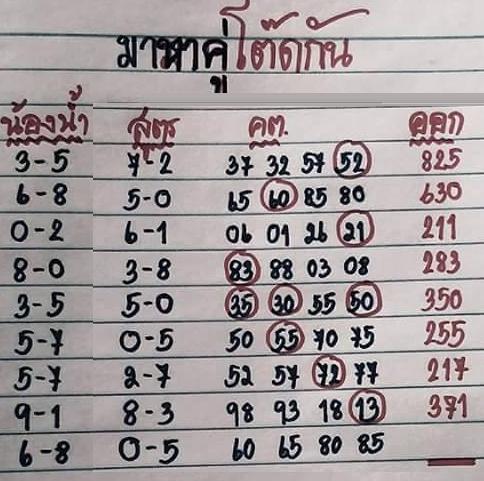 มาหาคู่โต๊ดกัน
น้องน้ำ สูตร คต. ออก
3-5 7-2 37 32 57 52 825
6-8 5-0 65 60 85 80 630
0-2 6-1 06 01 26 21 211
8-0 3-8 83 88 03 08 283
3-5 5-0 35 30 55 50 350
5-7 0-5 50 55 70 75 255
5-7 2-7 52 57 72 77 217
9-1 8-3 98 93 18 13 371
6-8 0-5 60 65 80 85